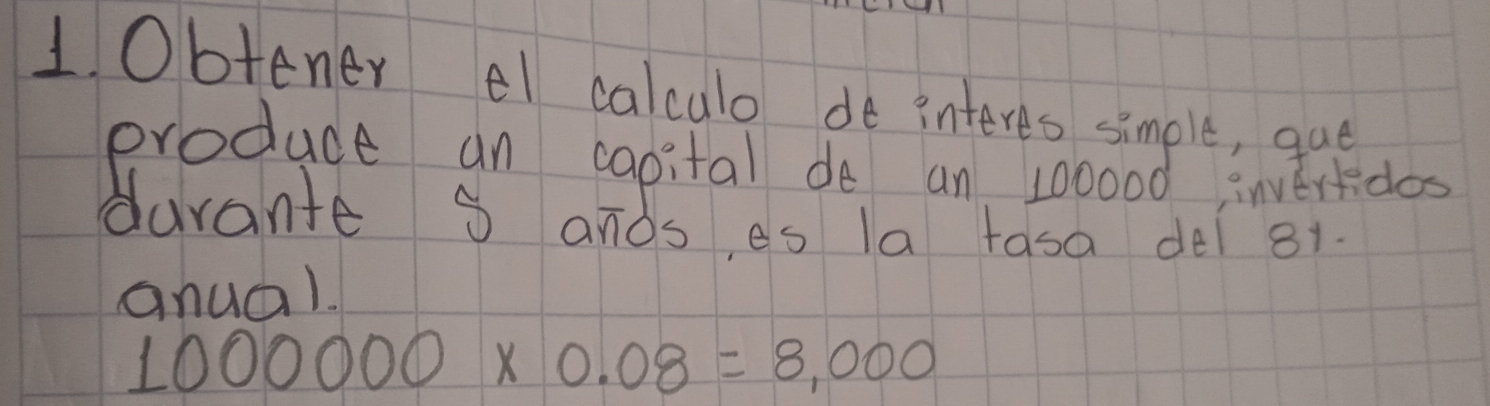 1. Obtener el calculo de interes simple, que
produce un capital de un 100000 invertidos
durante 5 años, es la tasa del 8%.
anual.
1000000 x 0.08 = 8,000